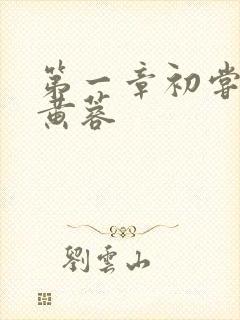 第一章初嘗
黄蓉
劉雲山